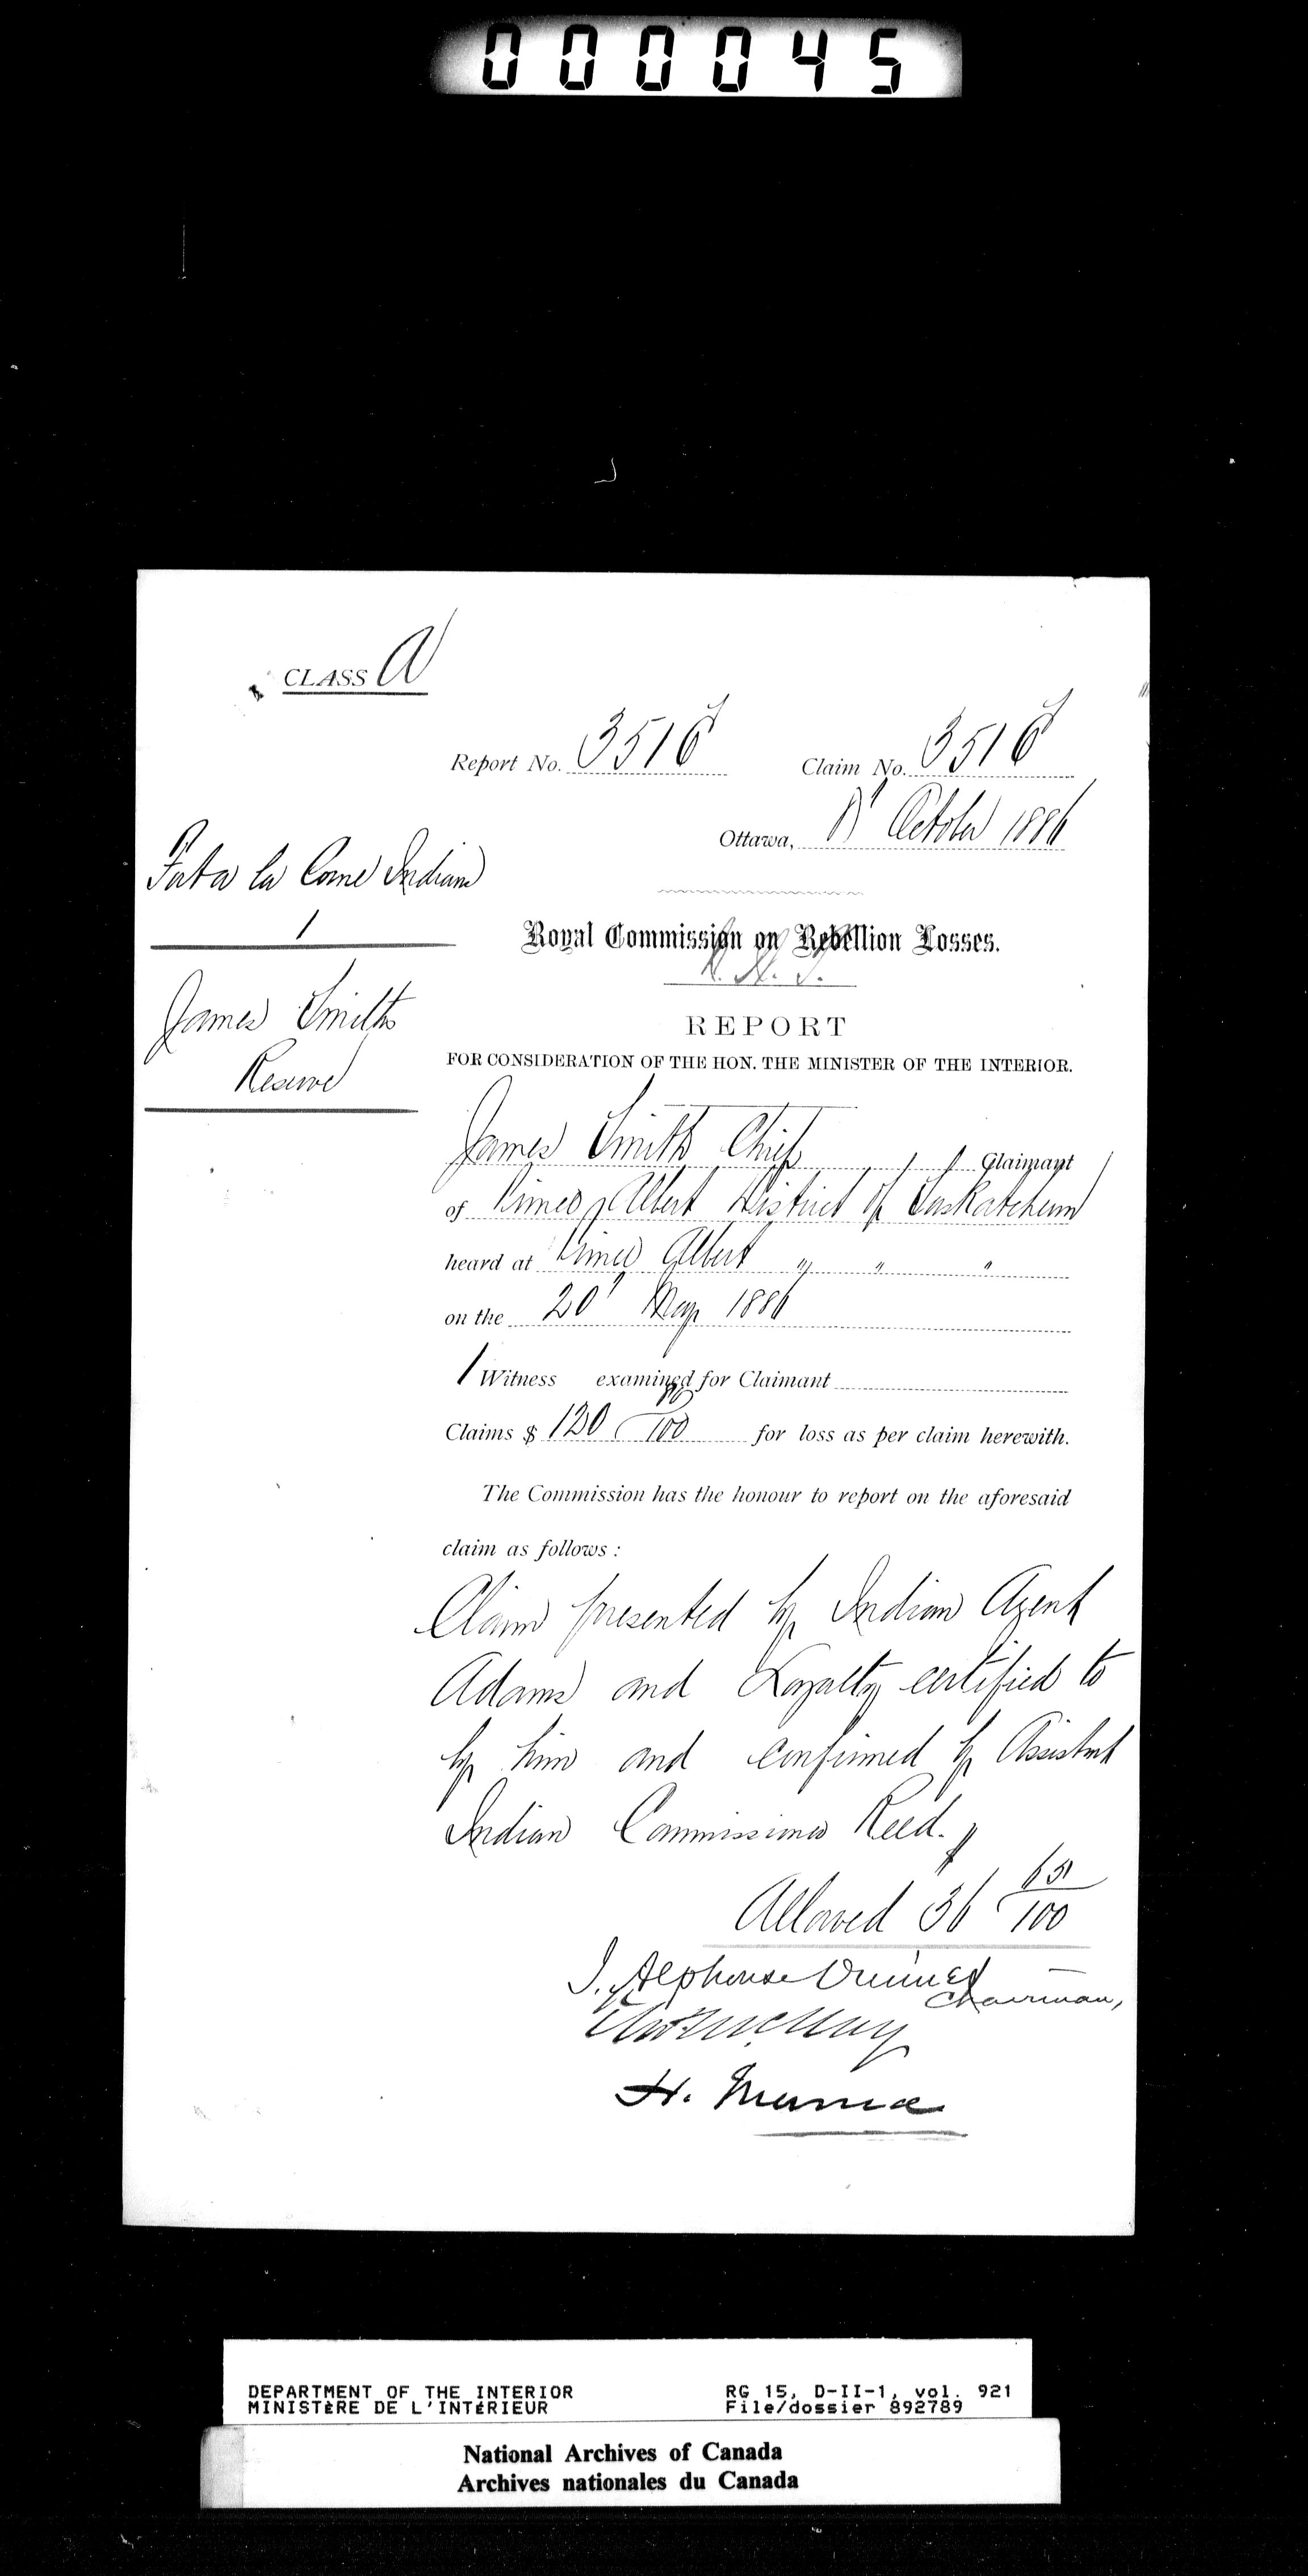 000045
CLASS A
Report No. 3516 Claim No. 3516
Ottawa, October 1886
Fort a la Corne Indians
1
Royal Commission on Rebellion Losses.
James Smiths
Reserve
REPORT
FOR CONSIDERATION OF THE HON. THE MINISTER OF THE INTERIOR.
James Smith Chief Claimant
of Prince Albert District of Saskatchewan
heard at Prince Albert " " "
on the 20' May 1886
1 Witness examined for Claimant
Claims $ 120 00/100 for loss as per claim herewith.
The Commission has the honour to report on the aforesaid
claim as follows:
Claim presented by Indian Agent
Adams and Loyalty certified to
by him and confirmed by Assistant
Indian Commissioner Reed.
Allowed 36 65/100
J. Alphonse Ouimet
Chairman,
H. Muma
DEPARTMENT OF THE INTERIOR RG 15, D-II-1, vol. 921
MINISTÈRE DE L'INTÉRIEUR File/dossier 892789
National Archives of Canada
Archives nationales du Canada